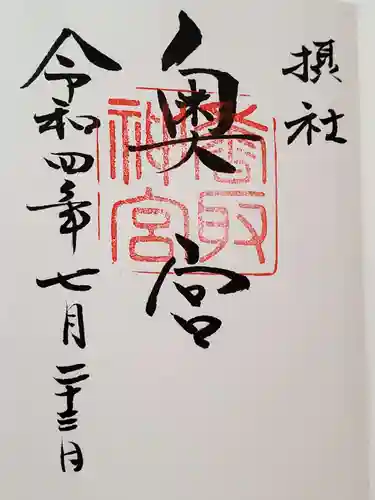 摂社
奥宮
香取神宮
令和四年七月二十三日